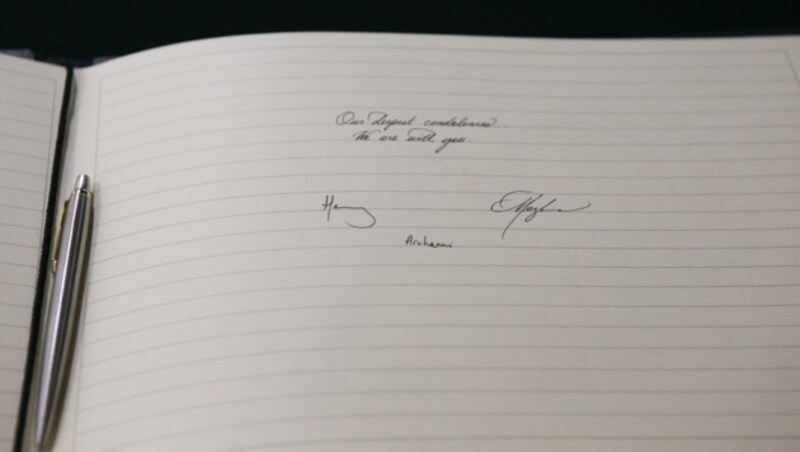 Our deepest condolences...
We are with you.
Harry Meghan
Arohanui